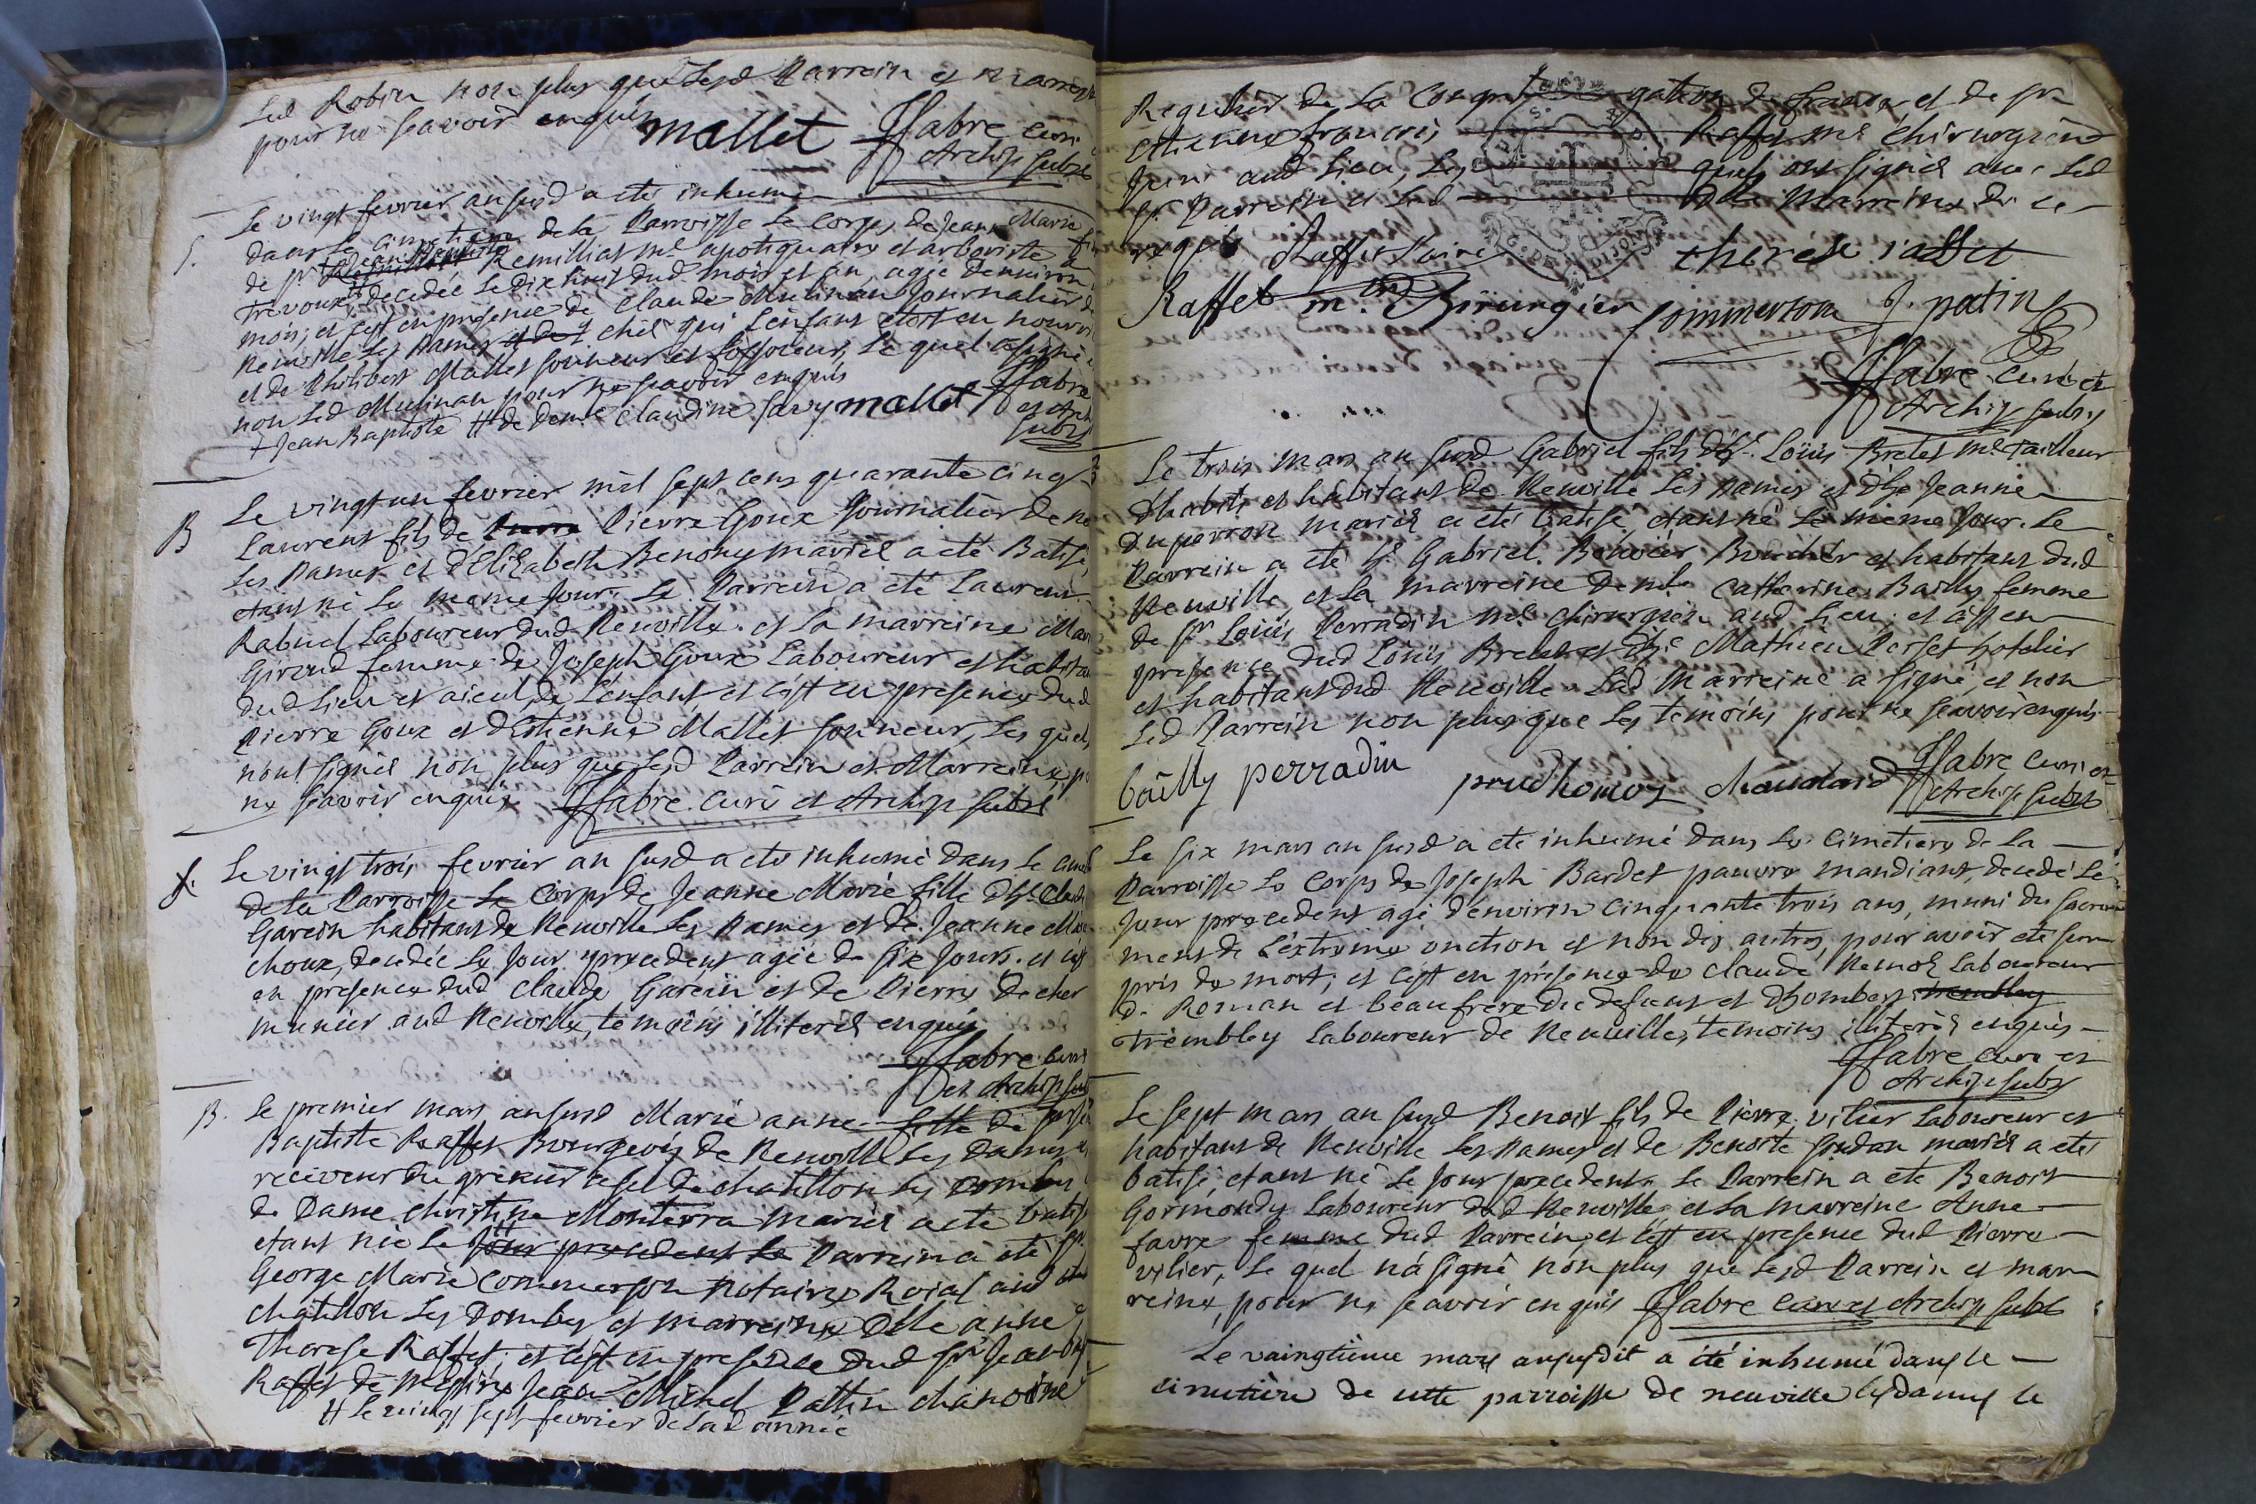 Led Robin non plus que lesd Parrein et Marreine
pour ne scavoir enquis
mallet ffabre curé
Archip subsé
S. Le vingt fevrier an susd a eté inhumé
dans le cimetiere de la Parroisse le corps de Jean Marie fils
de sr Remilliat me apotiquaire et arboriste a
Trevoux, decedée le dix huit dud mois et an, agée d'environ
mois, et c'est en presence de Claude Mulinan Journalier de
Neuville les Dames chés qui l'enfant etoit en nourrice
et de Philibert Mallet sonneur et fossoieur, le quel a signé
non led Mulinan pour ne scavoir enquis ffabre
+ Jean Baptiste # de demle Claudine savy mallet et Arch
subsé
B Le vingt un fevrier mil sept cens quarante cinq
Laurent fils de Pierre Goux Journalier de Ne
les Dames et d'Elizabeth Benony mariés a eté Batisé,
etant né le meme Jour. Le Parrein a été Laurent
Rabuel Laboureur dud Neuville. et la marreine Marie
Giroud femme de Joseph Goux Laboureur et habitant
dud lieu et aieul de l'enfant, et c'est en presence dud
Pierre Goux et d'Etienne Mallet sonneur, les quels
n'ont signés non plus que lesd Parrein et Marreine po
ne scavoir enquis ffabre curé et Archip subsé
S. Le vingt trois fevrier an susd a eté inhumé dans le cimet
de la Parroisse le Corps de Jeanne Marie fille d'h. Claude
Garein habitant de Neuville les Dames et de Jeanne
choux, decedée le Jour precedent agée de six Jours. et c'est
en presence dud Claude Garein et de Pierre Decher
munier aud Neuville, temoins illiterés enquis
ffabre curé
et Archip sub
B. Le premier mars an susd Marie anne fille de sr Jean
Baptiste Raffet Bourgeois de Neuville les Dames et
receveur du grenier a sel de chatillon les Dombes
de Dame Christine Monterra mariés a eté batisée
etant née le Jour precedent Le Parrein a eté sr
George Marie Commerson notaire Roial aud
chatillon les Dombes et marreine Dlle anne
Therese Raffet, et c'est en presence dud sr Jean bap
Raffet de messire Jean Michel Pattin chanoine
# Le vingt sept fevrier de lad année
Regulier de la Congregation de france et de sr
Etienne francois Raffet me chirurgien
Juré aud lieu, lesquels ont signés avec led
sr Parrein et lad Dlle Marreine de ce
requis Raffet Therese raffet
Raffet me Chirurgien Commerson J. patin
ffabre curé et
Archip subsé
Le trois mars an susd Gabriel fils d'h. Loüis Bretet me tailleur
d'habits et habitant de Neuville les Dames et d'he Jeanne
Duperron mariés a eté batisé, etant né le meme Jour. Le
Parrein a eté h. Gabriel Bouvier Boucher et habitant dud
Neuville, et la marreine demle Catherine Bailly femme
de sr Loüis Perradin me chirurgien aud lieu; et c'est en
presence dud Loüis Bretet et d'he Mathieu Perset hotelier
et habitant dud Neuville. Lad Marreine a signé, et non
led Parrein non plus que les temoins pour ne scavoir enquis
bailly perradin prudhomos chaudard ffabre curé et
Archip subsé
Le six mars an susd a eté inhumé dans le cimetiere de la
Parroisse le corps de Joseph Bardet pauvre mandiant, decedé le
Jour precedent agé d'environ cinquante trois ans, muni du sacre
ment de l'extreme onction et non des autres, pour avoir eté sur
pris de mort; et c'est en presence de Claude Laboureur
d. Roman et beaufrere du defunt et d'hombert trembley
Trembley Laboureur de Neuville, temoins illiterés enquis
ffabre curé et
Archip subsé
Le sept mars an susd Benoit fils de Pierre vilier Laboureur et
habitant de Neuville les Dames et de Benoite Joudan mariés a eté
batisé, etant né le Jour precedent. Le Parrein a eté Benoit
Gormondy Laboureur dud Neuville et la marreine Anne
favre femme dud Parrein, et c'est en presence dud Pierre
vilier, le quel n'a signé non plus que lesd Parrein et mar
reine, pour ne scavoir enquis ffabre curé et Archip subsé
Le vaingtieme mars ansusdit a été inhumé dans le
cimetiere de cette parroisse de neuville les dames le